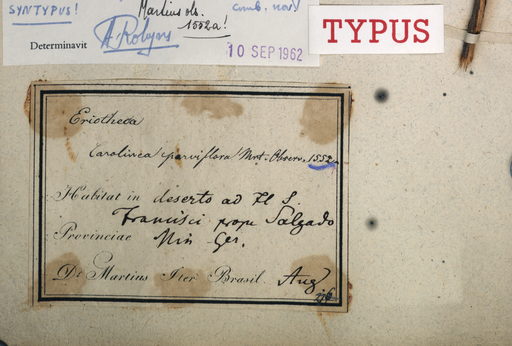 SYNTYPUS!
Martius obs. 1552a!
comb. nov.!
Determinavit A. Robyns
10 SEP 1962
TYPUS
Eriotheca
Carolinea parviflora Mrt. Observ. 1552.
Habitat in deserto ad Fl S.
Francisci prope Salgado
Provinciae Min Ger.
Dr Martius Iter Brasil. Aug